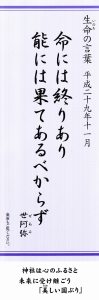 生命の言葉
平成二十九年十一月
命には終りあり
能には果てあるべからず
世阿弥
神社は心のふるさと
未来に受け継ごう
「美しい国ぶり」